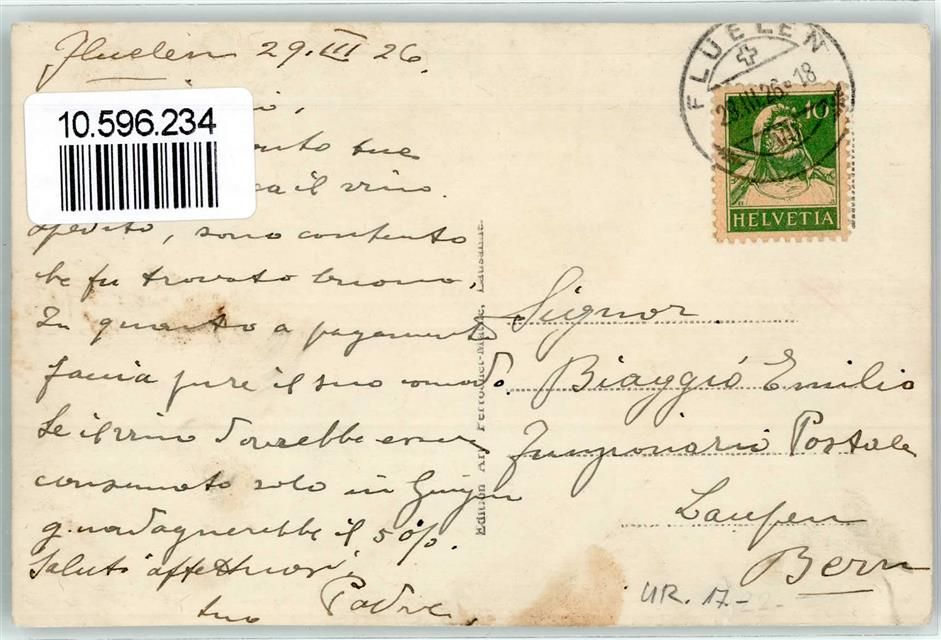 Fluelen 29.III 26.
10.596.234
tue
il vino
spedito, sono contento
che fu trovato buono.
In quanto a pagamento
faccia pure il suo comodo.
Se il vino dovrebbe essere
consumato solo in Giugn
guadagnerebbe il 50%.
Saluti affettuosi
tuo Padre
Edition Art. Perrochet-Matile, Lausanne
FLUELEN
29.III.26.-18
10
HELVETIA
Signor
Biaggio Emilio
Funzionario Postale
Laufen
Bern
UR. 17.-